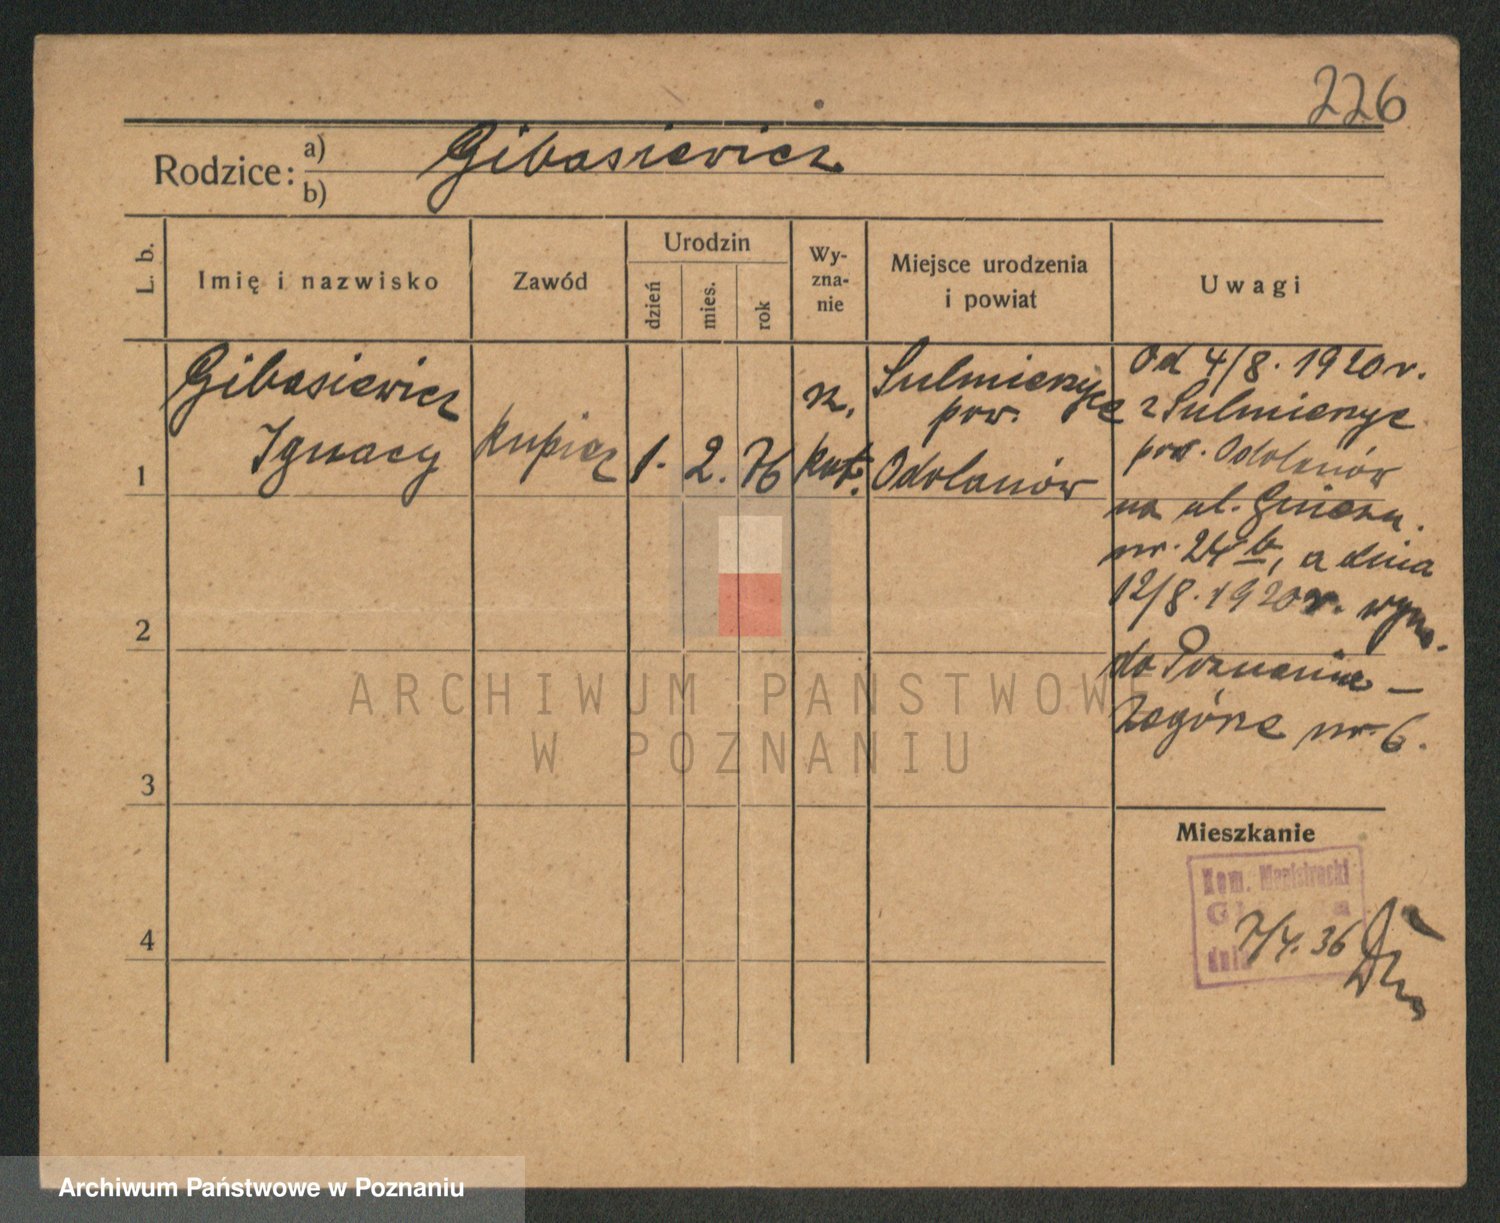 226
Rodzice: a) Gibasiewicz
b)
L. b. Imię i nazwisko Zawód Urodzin dzień mies. rok Wy-zna-nie Miejsce urodzenia i powiat Uwagi
1 Gibasiewicz Ignacy kupiec 1. 2. 76 rz. kat. Sulmierzyce pow. Odolanów
Od 4/8. 1920 r.
z Sulmierzyc
pow. Odolanów
na ul. Gniezn.
nr. 24 b, a dnia
12/8. 1920 r. wym.
do Poznania –
Zagórze nr. 6.
2
3
4
Mieszkanie
Kom. Magistracki
dnia 7/4. 36
ARCHIWUM PAŃSTWOWE
W POZNANIU
Archiwum Państwowe w Poznaniu